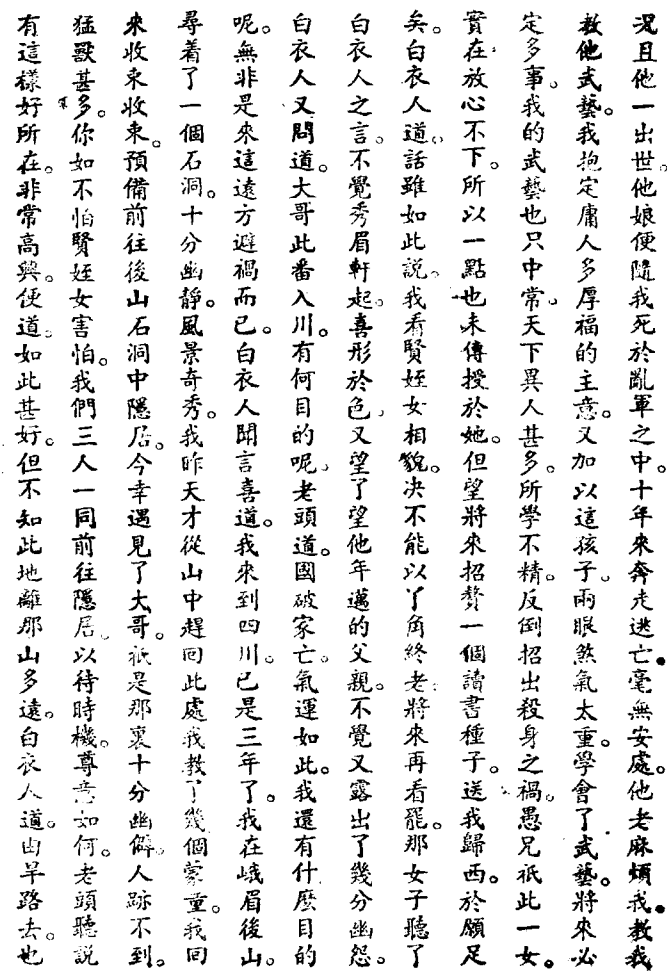 况且他一出世。他娘便隨我死於亂軍之中。十年來奔走逃亡。毫無安處。他老麻煩我。教我
教他武藝。我抱定庸人多厚福的主意。又加以這孩子。兩眼煞氣太重。學會了武藝。將來必
定多事。我的武藝也只中常。天下異人甚多。所學不精。反倒招出殺身之禍。愚兄祇此一女。
實在放心不下。所以一點也未傳授於她。但望將來招贅一個讀書種子。送我歸西。於願足
矣。白衣人道。話雖如此說。我看賢姪女相貌。决不能以丫角終老。將來再看罷。那女子聽了
白衣人之言。不覺秀眉軒起。喜形於色。又望了望他年邁的父親。不覺又露出了幾分幽怨。
白衣人又問道。大哥此番入川。有何目的呢。老頭道。國破家亡。氣運如此。我還有什麽目的
呢。無非是來這遠方避禍而已。白衣人聞言喜道。我來到四川。已是三年了。我在峨眉後山。
尋着了一個石洞。十分幽靜。風景奇秀。我昨天才從山中趕回此處。我教了幾個蒙童。我回
來收束收束。預備前往後山石洞中隱居。今幸遇見了大哥。祇是那裏十分幽僻。人跡不到。
猛獸甚多。你如不怕賢姪女害怕。我們三人一同前往隱居。以待時機。尊意如何。老頭聽說
有這樣好所在。非常高興。便道。如此甚好。但不知此地離那山多遠。白衣人道。由旱路去。也